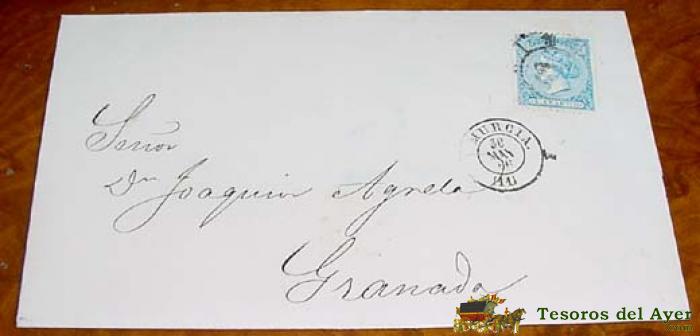 MURCIA.
30
MAY
Señor
Dn Joaquin Agrela
Granada
Tesoros del Ayer
.com